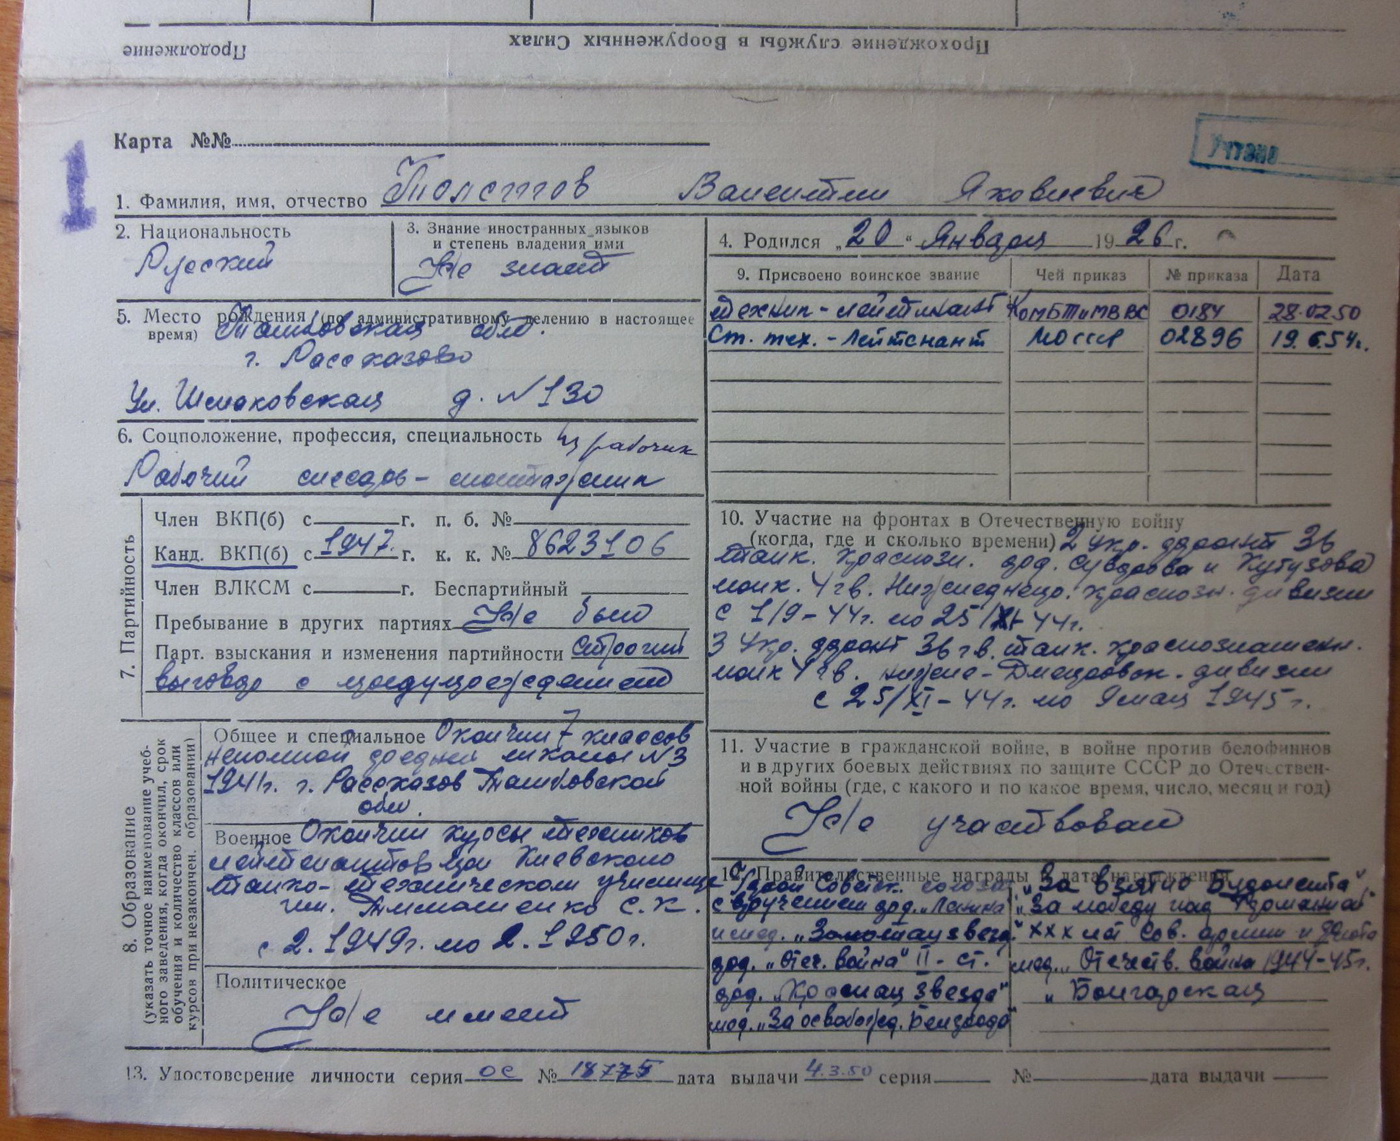 Продолжение
Прохождение службы в Вооруженных Силах
1
Учтено
Карта №№
1. Фамилия, имя, отчество Толстов Валентин Яковлевич
2. Национальность
Русский
3. Знание иностранных языков
и степень владения ими
Не знает
4. Родился „20“ Января 1926 г.
5. Место рождения (по административному делению в настоящее
время) Тамбовская обл.
г. Рассказово
Ул. Шмаковская д. №130
6. Соцположение, профессия, специальность из рабочих
Рабочий слесарь-монтажник
7. Партийность
Член ВКП(б) с г. п. б. №
Канд. ВКП(б) с 1947 г. к. к. № 8623106
Член ВЛКСМ с г. Беспартийный
Пребывание в других партиях Не был
Парт. взыскания и изменения партийности Строгий
выговор с предупреждением
8. Образование
(указать точное наименование учеб-
ного заведения, когда окончил, срок
обучения и количество классов или
курсов при незакончен. образовании)
Общее и специальное Окончил 7 классов
неполной средней школы №3
1941г. г. Рассказов Тамбовской
обл.
Военное Окончил курсы техников
лейтенантов при Киевском
танко-техническом училище
им. Тимошенко С.К.
с 2.1949г. по 2.1950г.
Политическое
Не имеет
9. Присвоено воинское звание Чей приказ № приказа Дата
техник-лейтенант КомБТиМВ ВС 0184 28.02.50
Ст. тех.-лейтенант 02896 19.6.54г.
10. Участие на фронтах в Отечественную войну
(когда, где и сколько времени) 2 Укр. фронт 36
танк. краснозн. орд. Суворова и Кутузова
полк. 4 гв. Нижнеднепр. краснозн. дивизии
с 1/9-44г. по 25/XI-44г.
3 Укр. фронт 36 гв. танк. краснознаменн.
полк 4 гв. дивизии
с 25/XI-44г. по 9 мая 1945г.
11. Участие в гражданской войне, в войне против белофиннов
и в других боевых действиях по защите СССР до Отечествен-
ной войны (где, с какого и по какое время, число, месяц и год)
Не участвовал
12. Правительственные награды и дата награждения
Герой Советск. союза
с вручением орд. „Ленина“
и мед. „Золотая звезда“
орд. „Отеч. война“ II-ст.
орд. „Красная звезда“
мед. „За освобожд. Белграда“
„За взятие Будапешта“
„За победу над Германией“
„XXX лет Сов. армии и флота
мед. „Отечеств. война 1944-45г.
„ Болгарская
13. Удостоверение личности серия ОС № 18775 дата выдачи 4.3.50 серия № дата выдачи